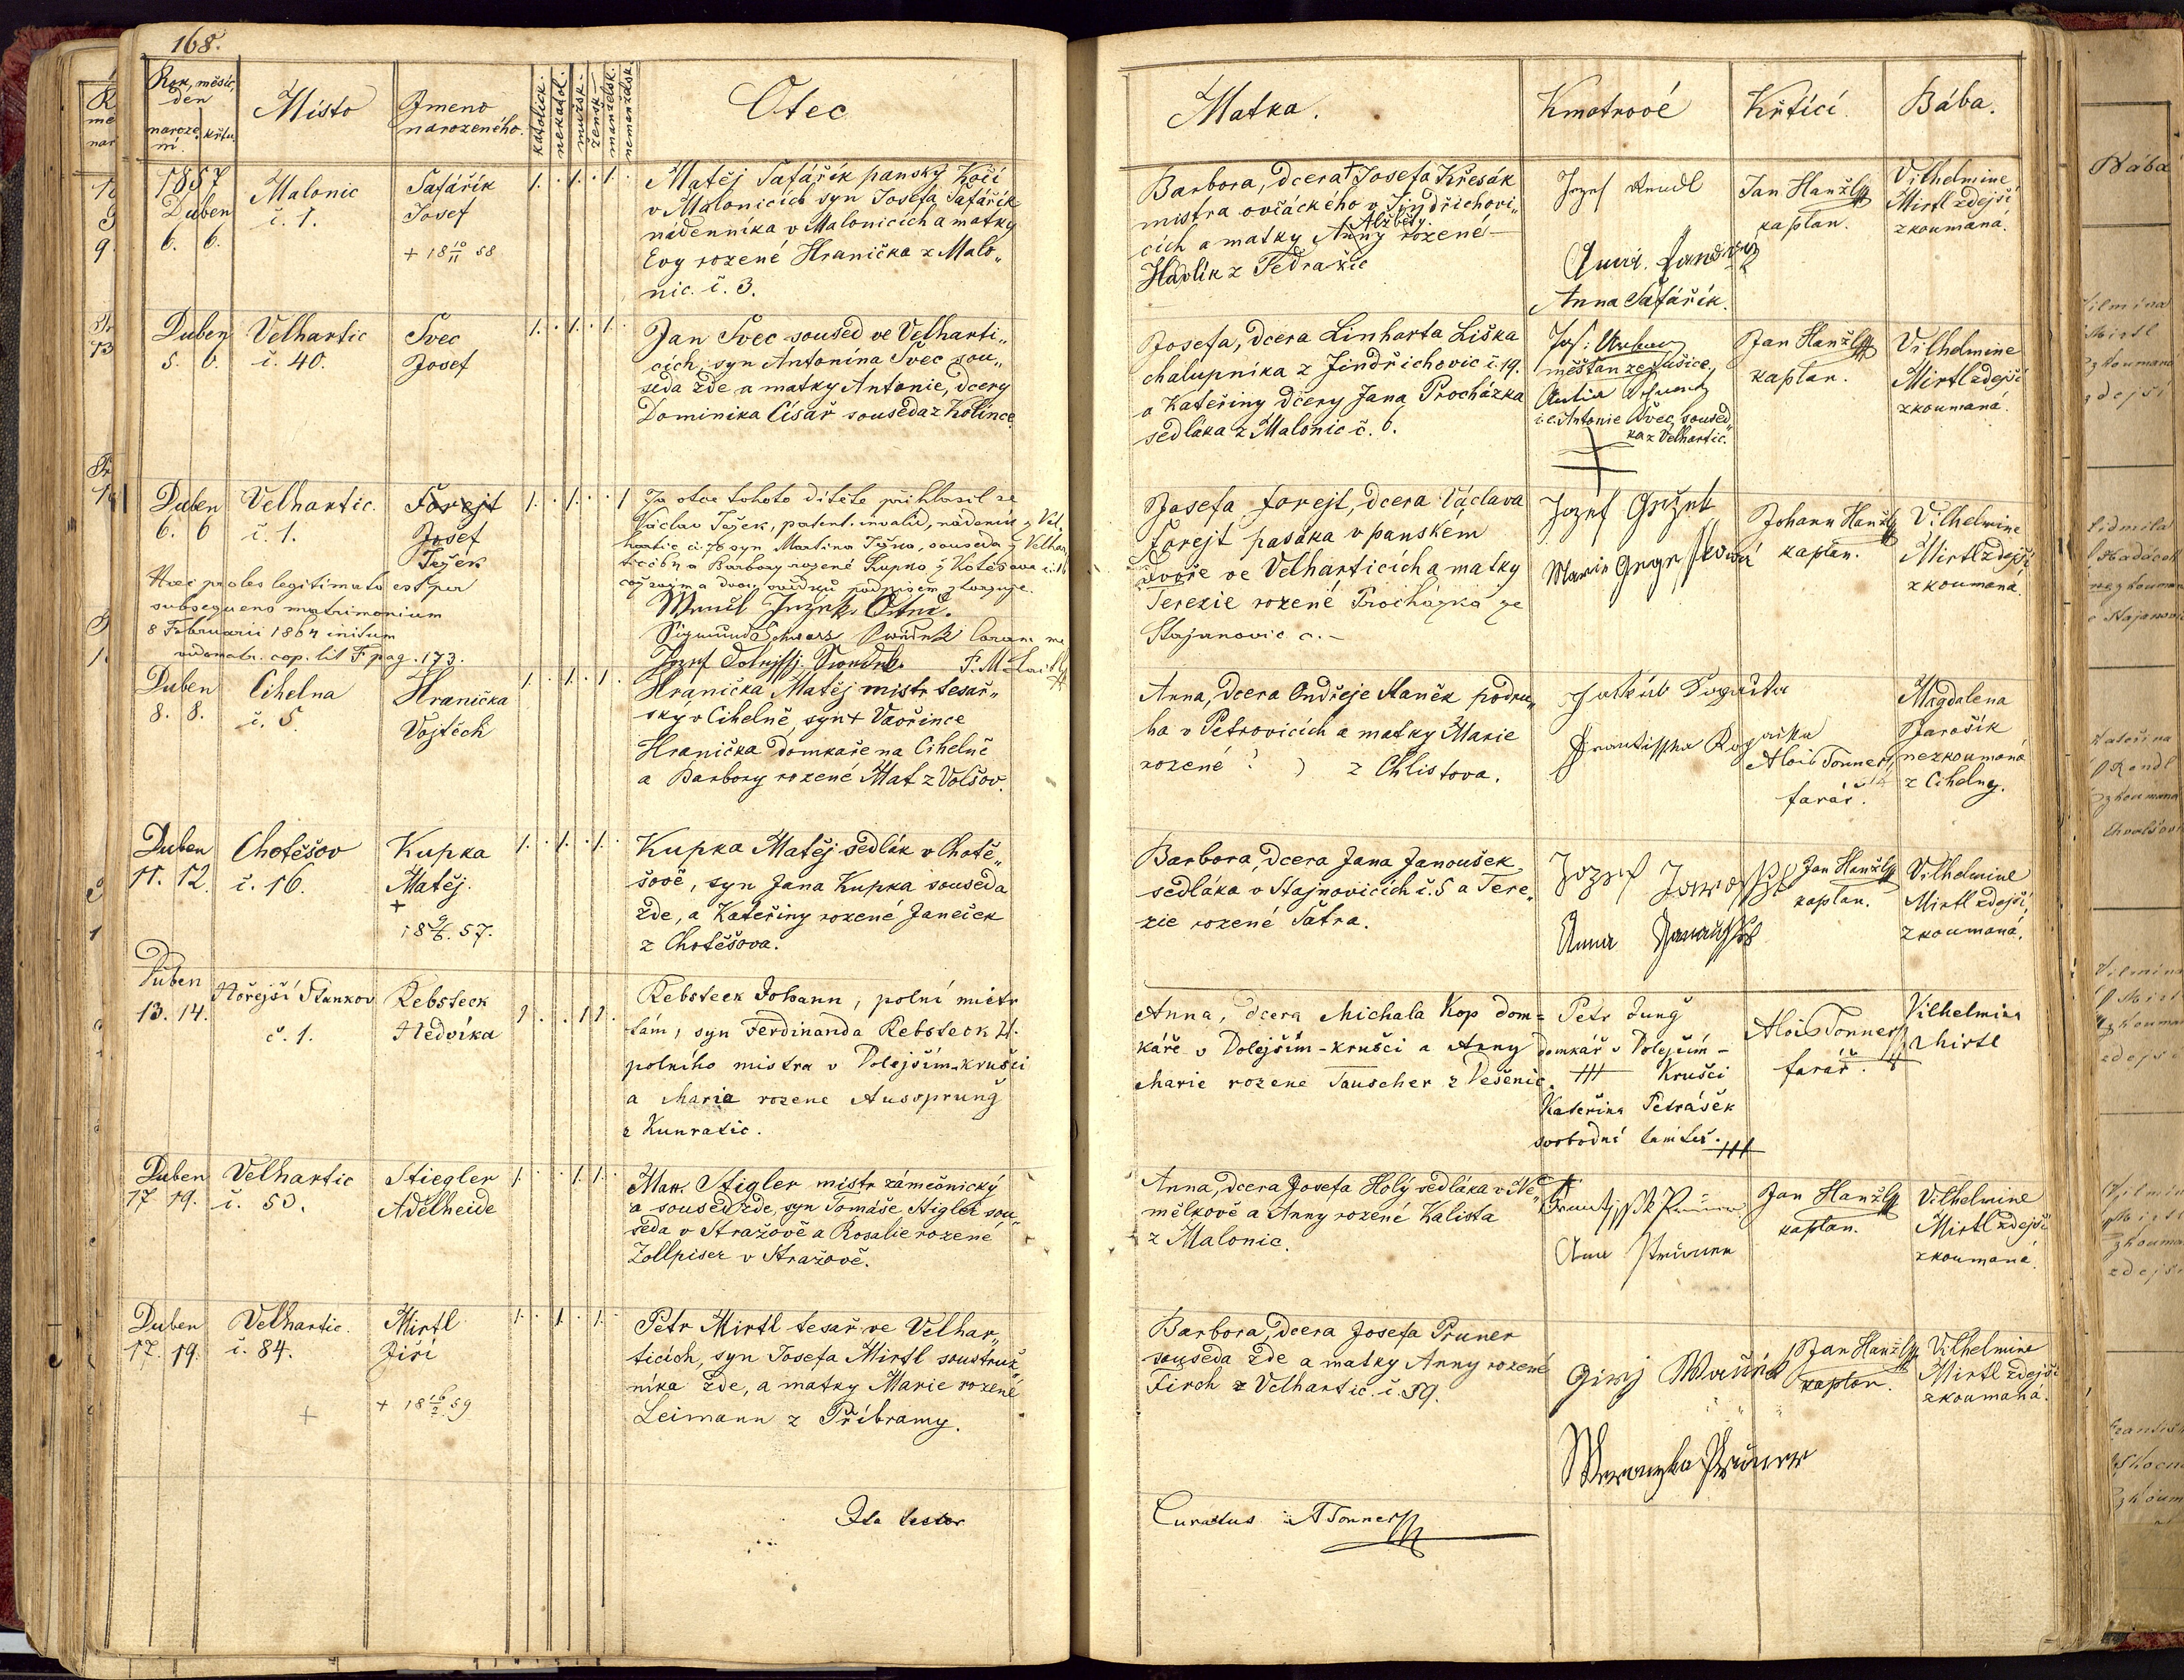 168.
Rok, měsíc, den
naroze ní. křtu.
Místo
Jmeno narozeného.
katolick.
nekatol.
mužsk.
žensk.
manželsk.
nemanželsk.
Otec
Matka.
Kmotrové
Křtící.
Bába.
1857
Duben
6. 6.
Malonic
č. 1.
Šafářík
Josef
+ 18 10/11 58
1. . 1. . 1.
Matěj Šafářík panský Kočí
v Malonicích syn Josefa Šafářík
nádenníka v Malonicích a matky
Evy rozené Hranička z Malo„
nic. č. 3.
Barbora, dcera + Josefa Křesák
mistra ovčáckého v Jindřichovi„
Alžběty
cích a matky Anny rozené
Havlík z Tedražic
Jozef
Anna Šafářík.
Jan Hanžl
kaplan.
Vilhelmine
Mirtl zdejší
zkoumaná.
Duben
5. 6.
Velhartic
č. 40.
Švec
Josef
1. . 1. . 1.
Jan Švec soused ve Velharti„
cích, syn Antonína Švec sou„
seda zde a matky Antonie, dcery
Dominika Císař souseda z Kolince
Josefa, dcera Linharta Liška
chalupníka z Jindřichovic č. 19.
a Kateřiny dcery Jana Procházka
sedláka z Malonic č. 6.
Jos:
měšťan ze Sušice,
i.e. Antonie Švec, soused„
ka z Velhartic.
Jan Hanžl
kaplan.
Vilhelmine
Mirtl zdejší
zkoumaná.
Duben
6. 6
Velhartic.
č. 1.
Forejt
Josef
Ješek
1. . 1. . . 1
Za otce tohoto dítěte přihlásil se
Václav Ješek, patent. invalid, nádeník z Vel„
hartic
a Barbory rozené Kupka z Chotěšova
Haec proles legitimata est per
subsequens matrimonium
8 Februarii 1864 initum
vide matr. cop. lit F pag. 173.
Sigmund Schwarz coram me
Josefa Forejt, dcera Václava
Forejt pasáka v panském
dvoře ve Velharticích a matky
Terezie rozené Procházka ze
Stajanovic č. –
Jozef
Marie
Johann Hanžl
kaplan.
Vilhelmine
Mirtl zdejší
zkoumaná.
Duben
8. 8.
Cihelna
č. 5.
Hranička
Vojtěch
1. . 1. . 1.
Hranička Matěj mistr tesař„
ský v Cihelně, syn + Vavřince
Hranička domkaře na Cihelně
a Barbory rozené Mat z Volšov.
Anna, dcera Ondřeje Staněk podru„
ha v Petrovicích a matky Marie
rozené ? ) z Chlistova.
Jakub
Alois Tonner
farář.
Magdalena
Jarošík
nezkoumaná
z Cihelny.
Duben
11. 12.
Chotěšov
č. 16.
Kupka
Matěj.
+
18 9/6. 57.
1. . 1. . 1.
Kupka Matěj sedlák v Chotě„
šově, syn Jana Kupka souseda
zde, a Kateřiny rozené Janeček
z Chotěšova.
Barbora, dcera Jana Janoušek
sedláka v Stajnovicích č. 5 a Tere„
zie rozené Šatra.
Jozef
Anna
Jan Hanžl
kaplan.
Vilhelmine
Mirtl zdejší,
zkoumaná.
Duben
13. 14.
Hořejší Stankov
č. 1.
Rebsteck
Hedvika
1 . . 1 1 .
Rebsteck Johann, polní mistr
tam, syn Ferdinanda Rebsteck
polního mistra v Dolejším-Krušci
a Marie rozene Aussprung
z Kunratic.
Anna, dcera Michala Kop dom=
káře v Dolejším-Krušci a Anny
Marie rozene Tauscher z Dešenic.
Petr Jung
domkář v Dolejším-
+++ Krušci
Kateřina Petrášek
svobodná tamtéž. +++
Alois Tonner
farář.
Vilhelmina
Mirtl
Duben
17. 19.
Velhartic
č. 50.
Stiegler
Adelheide
1. . . 1. 1.
Mat. Stigler mistr zámečnický
a soused zde, syn Tomáše Stigler sou„
seda v Stražově a Rosalie rozené
Zollpiser v Stražově.
Anna, dcera Josefa Holý sedláka v Ně„
mělkově a Anny rozené Kalista
z Malonic.
Jan Hanžl
kaplan.
Vilhelmine
Mirtl zdejší
zkoumaná.
Duben
17. 19.
Velhartic.
č. 84.
Mirtl
Jiří
+ 18 16/2. 59
+
1. . 1. . 1.
Petr Mirtl tesař ve Velhar„
ticích, syn Josefa Mirtl soustruž„
níka zde, a matky Marie rozené
Leimann z Příbramy.
Barbora, dcera Josefa Pruner
souseda zde a matky Anny rozené
Firch z Velhartic. č. 59.
Girj
Jan Hanžl
kaplan.
Vilhelmine
Mirtl zdejší
zkoumaná.
Ita testor
Curatus ATonner